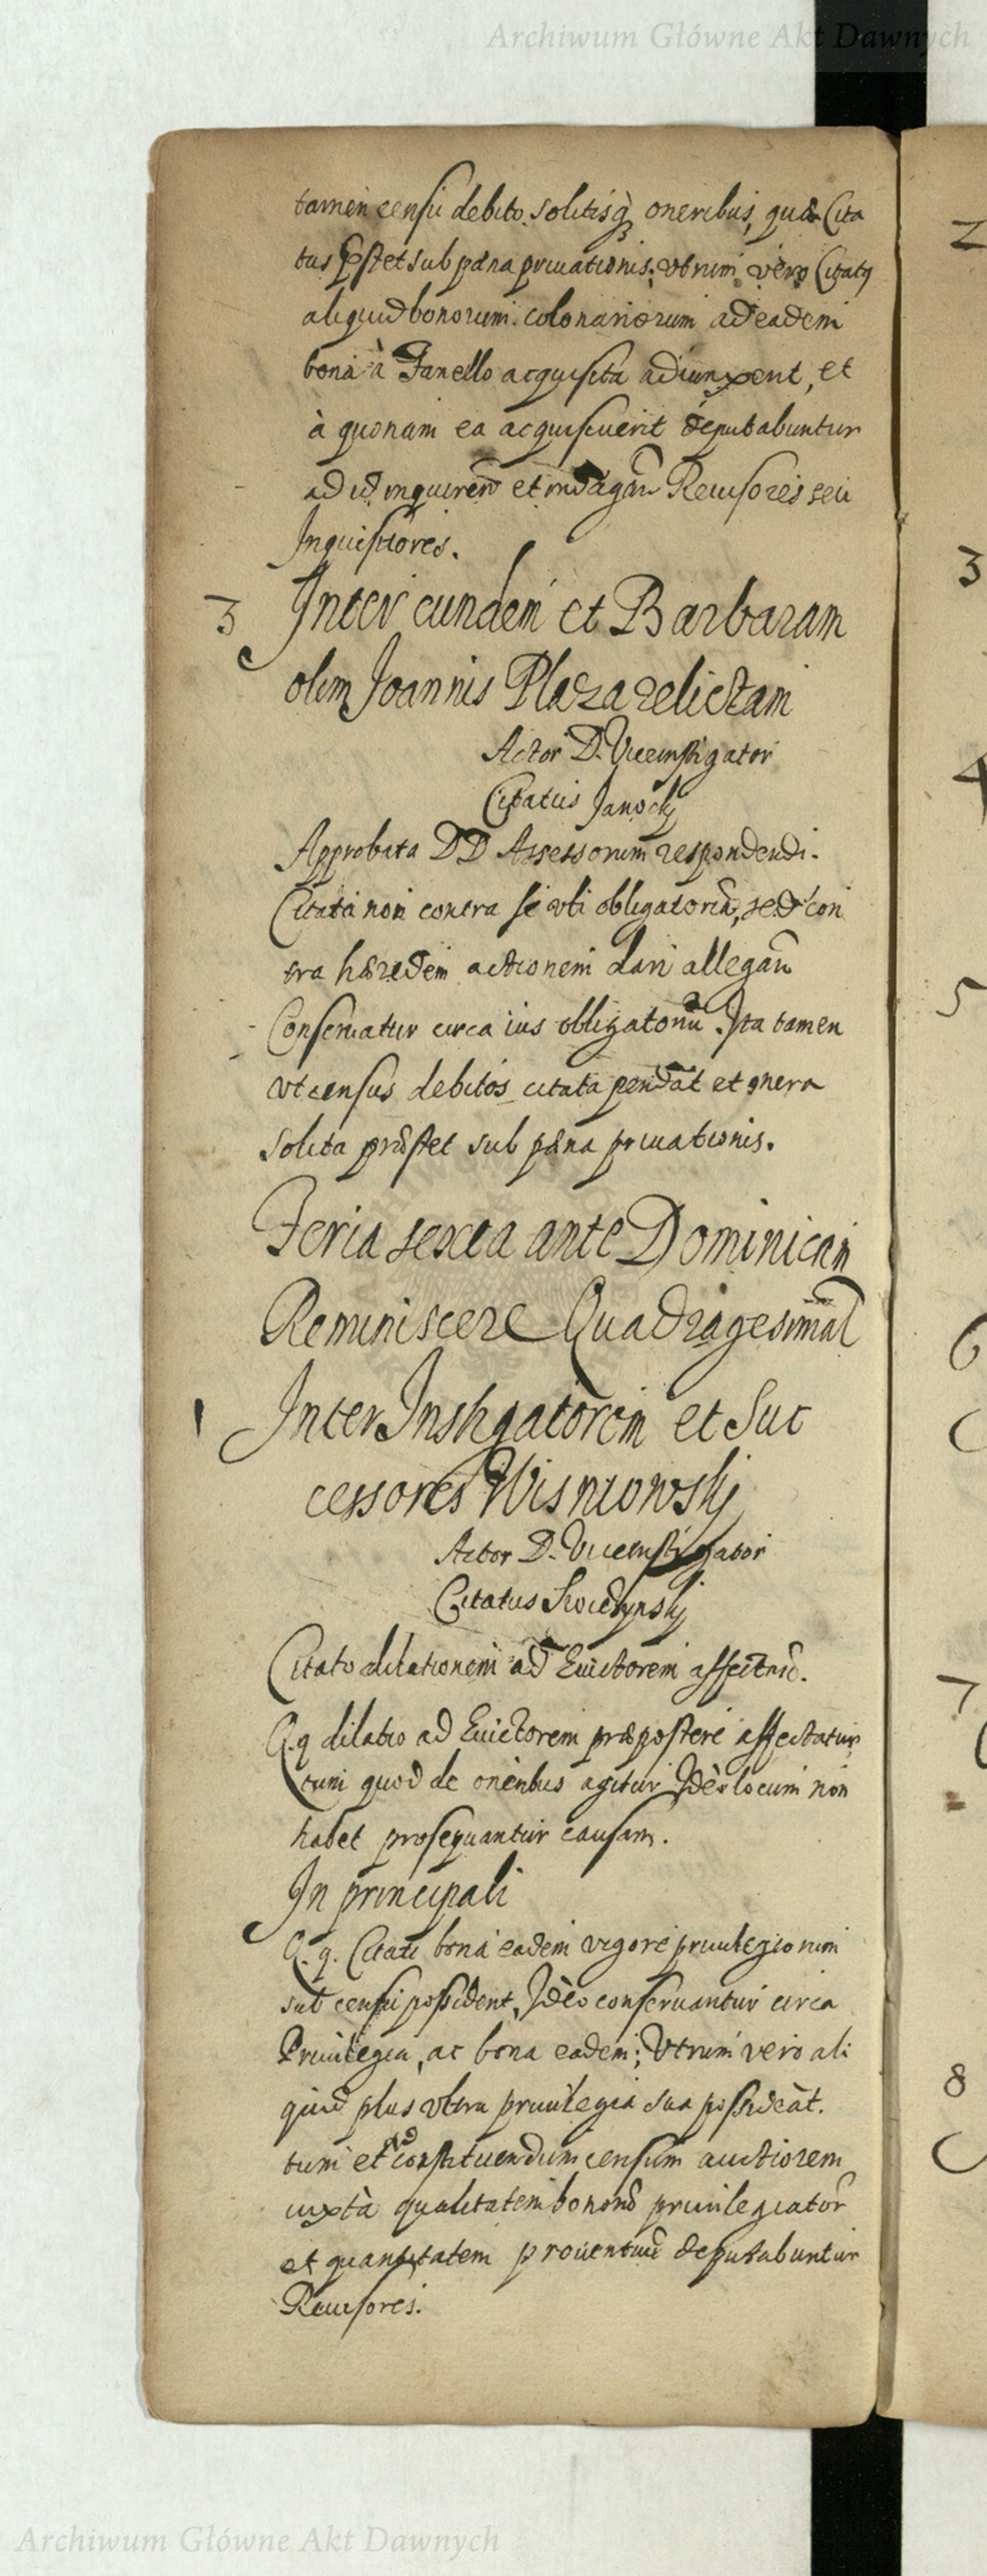 Archiwum Główne Akt Dawnych
tamen censu debito solitisq; oneribus, quæ Cita
tus pstet sub pæna priuationis; Vtrum vero Citatq
aliquid bonorum colonariorum ad eadem
bona à Fanello acquisita adiunxerit, et
à quonam ea acquisiuerit deputabuntur
ad id inquiren et indagan Reuisores seu
Inquisitores.
3 Inter eundem et Barbaram
olim Joannis Plaza relictam
Actor D. Viceinstigator
Citatus Janockj
Approbata DD Assessorum respondendi.
Citata non contra se vti obligatoria, sed con
tra hæredem actionem dari allegan
Conseruatur circa ius obligatoriu. Ita tamen
vt census debitos citata pendat et onera
solita præstet sub pæna priuationis.
Feria sexta ante Dominicam
Reminiscere Quadragesimal
1 Inter Instigatorem et Suc
cessores Wisniowskj
Actor D. Viceinstigator
Citatus
Citato dilationem ad Euictorem affectan.
Q.q dilatio ad Euictorem præpostere affectatur,
tum quod de oneribus agitur Ideo locum non
habet prosequantur causam.
In principali
Q.q. Citati bona eadem vigore priuilegiorum
sub censu possident, Ideo conseruantur circa
Priuilegia, ac bona eadem; Vtrum vero ali
quid plus vltra priuilegia sua possideat.
tum et ad constituendum censum auctiorem
iuxta qualitatem bonor priuilegiator
et quantitatem prouentuu deputabuntur
Reuisores.
2
3
4
5
6
7
8
Archiwum Główne Akt Dawnych